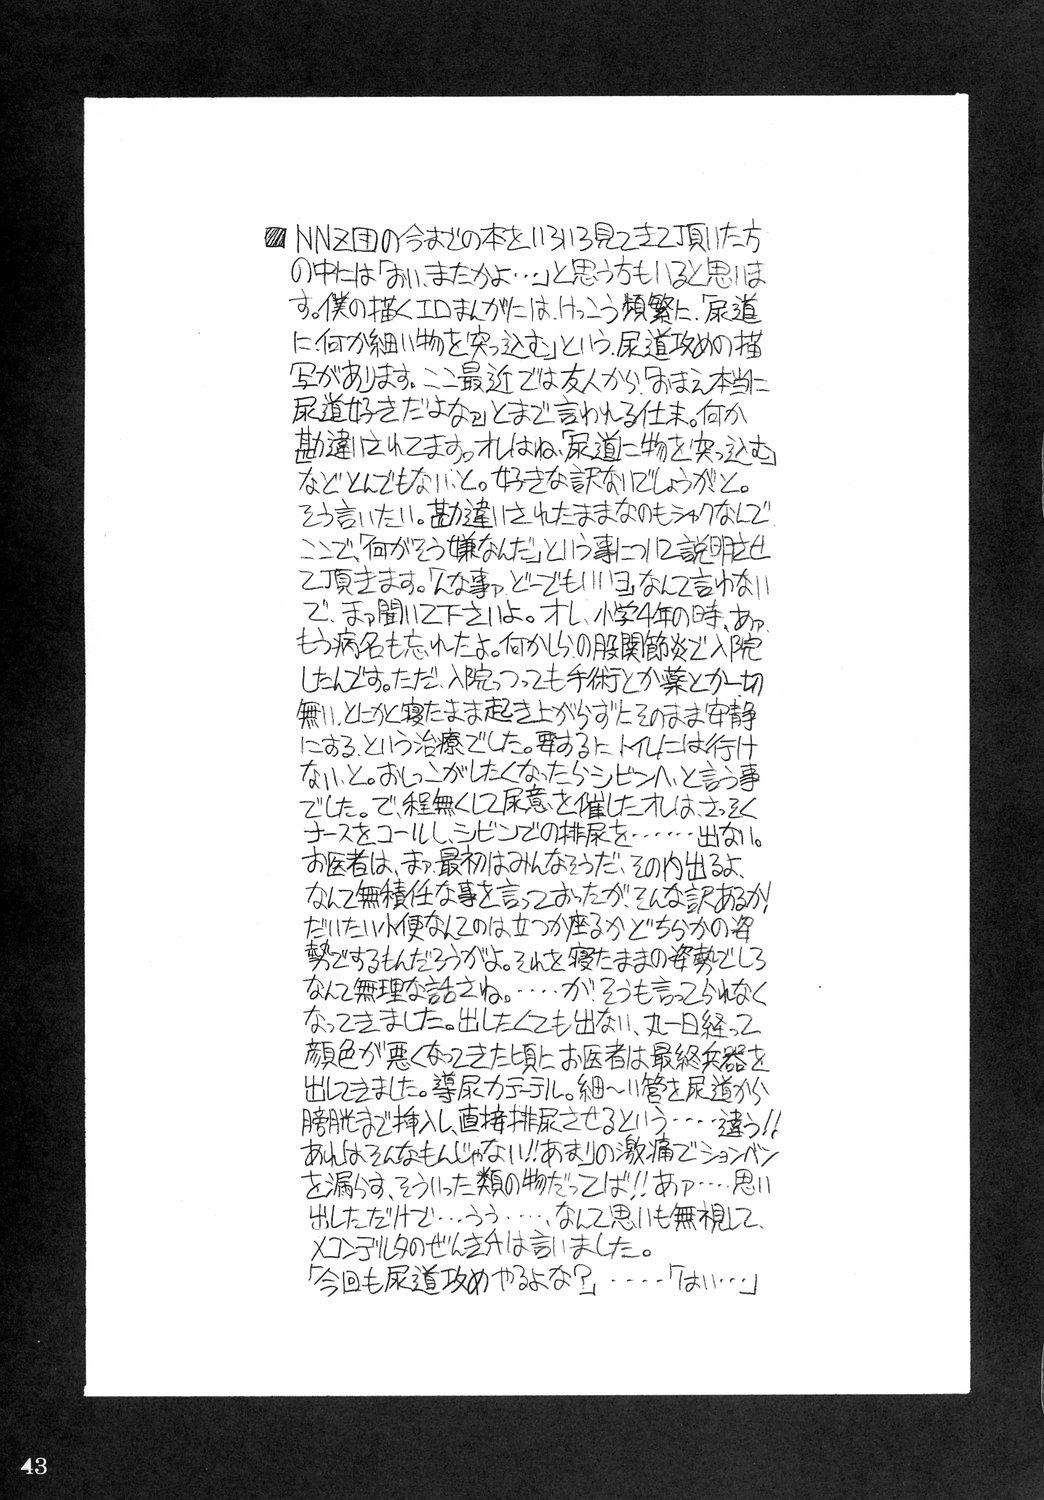 ■NNZ団の今までの本をいろいろ見てきて頂いた方
の中には「おい、またかよ…」と思う方もいると思いま
す。僕の描くエロまんがには、けっこう頻繁に、「尿道
に何か細い物を突っ込む」という、尿道攻めの描
写があります。ここ最近では友人から「おまえ本当に
尿道好きだよなァ」とまで言われる仕末。何か
勘違いされてます。オレはね、「尿道に物を突っ込む」
などとんでもない、と。好きな訳ないでしょうがと。
そう言いたい。勘違いされたままなのもシャクなんで
ここで、「何がそう嫌なんだ」という事について説明させ
て頂きます。「んな事ァ、どーでもいいヨ」なんて言わない
で、まァ聞いて下さいよ。オレ、小学4年の時、あァ、
もう病名も忘れたよ。何かしらの股関節炎で入院
したんです。ただ、入院っつっても手術とか薬とか一切
無い、とにかく寝たまま起き上がらずにそのまま安静
にする、という治療でした。要するに、トイレには行け
ない、と。おしっこがしたくなったらシビンへ、と言う事
でした。で、程無くして尿意を催したオレは、さっそく
ナースをコールし、シビンでの排尿を‥‥‥出ない。
お医者は、まァ、最初はみんなそうだ、その内出るよ、
なんて無積任な事を言っておったが、そんな訳あるか!
だいたい小便なんてのは立つか座るかどちらかの姿
勢でするもんだろうがよ。それを寝たままの姿勢でしろ
なんて無理な話さね。‥‥が、そうも言ってられなく
なってきました。出したくても出ない、丸一日経って
顔色が悪くなってきた頃に、お医者は、最終兵器を
出してきました。導尿カテーテル。細〜い管を尿道から
膀胱まで挿入し、直接排尿させるという‥‥違う!!
あれはそんなもんじゃない!!あまりの激痛でションベン
を漏らす、そういった類の物だってば!!あァ‥‥思い
出しただけで…うう‥‥、なんて思いも無視して、
メコンデルタのぜんきチは言いました。
「今回も尿道攻めやるよな?」‥‥「はい…」
43